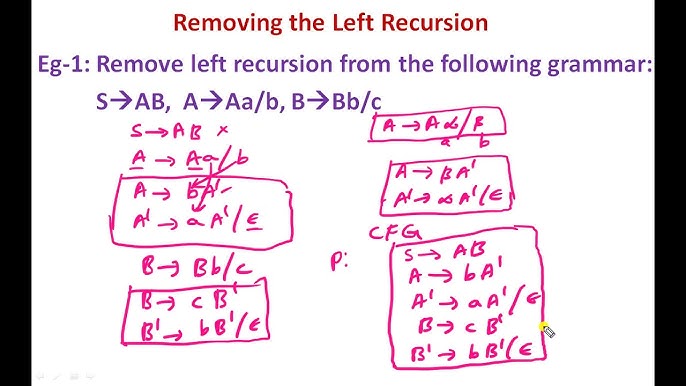 Removing the Left Recursion
Eg-1: Remove left recursion from the following grammar:
S→AB, A→Aa/b, B→Bb/c
S→AB ×
A → Aa/b
A → bA'
A' → aA'/ϵ
B→ Bb/c
B→ c B'
B'→ bB'/ϵ
A → A α/β
a b
A → β A'
A'→ α A'/ϵ
CFG
P:
S→ AB
A → bA'
A' → aA'/ϵ
B → c B'
B' → b B'/ϵ